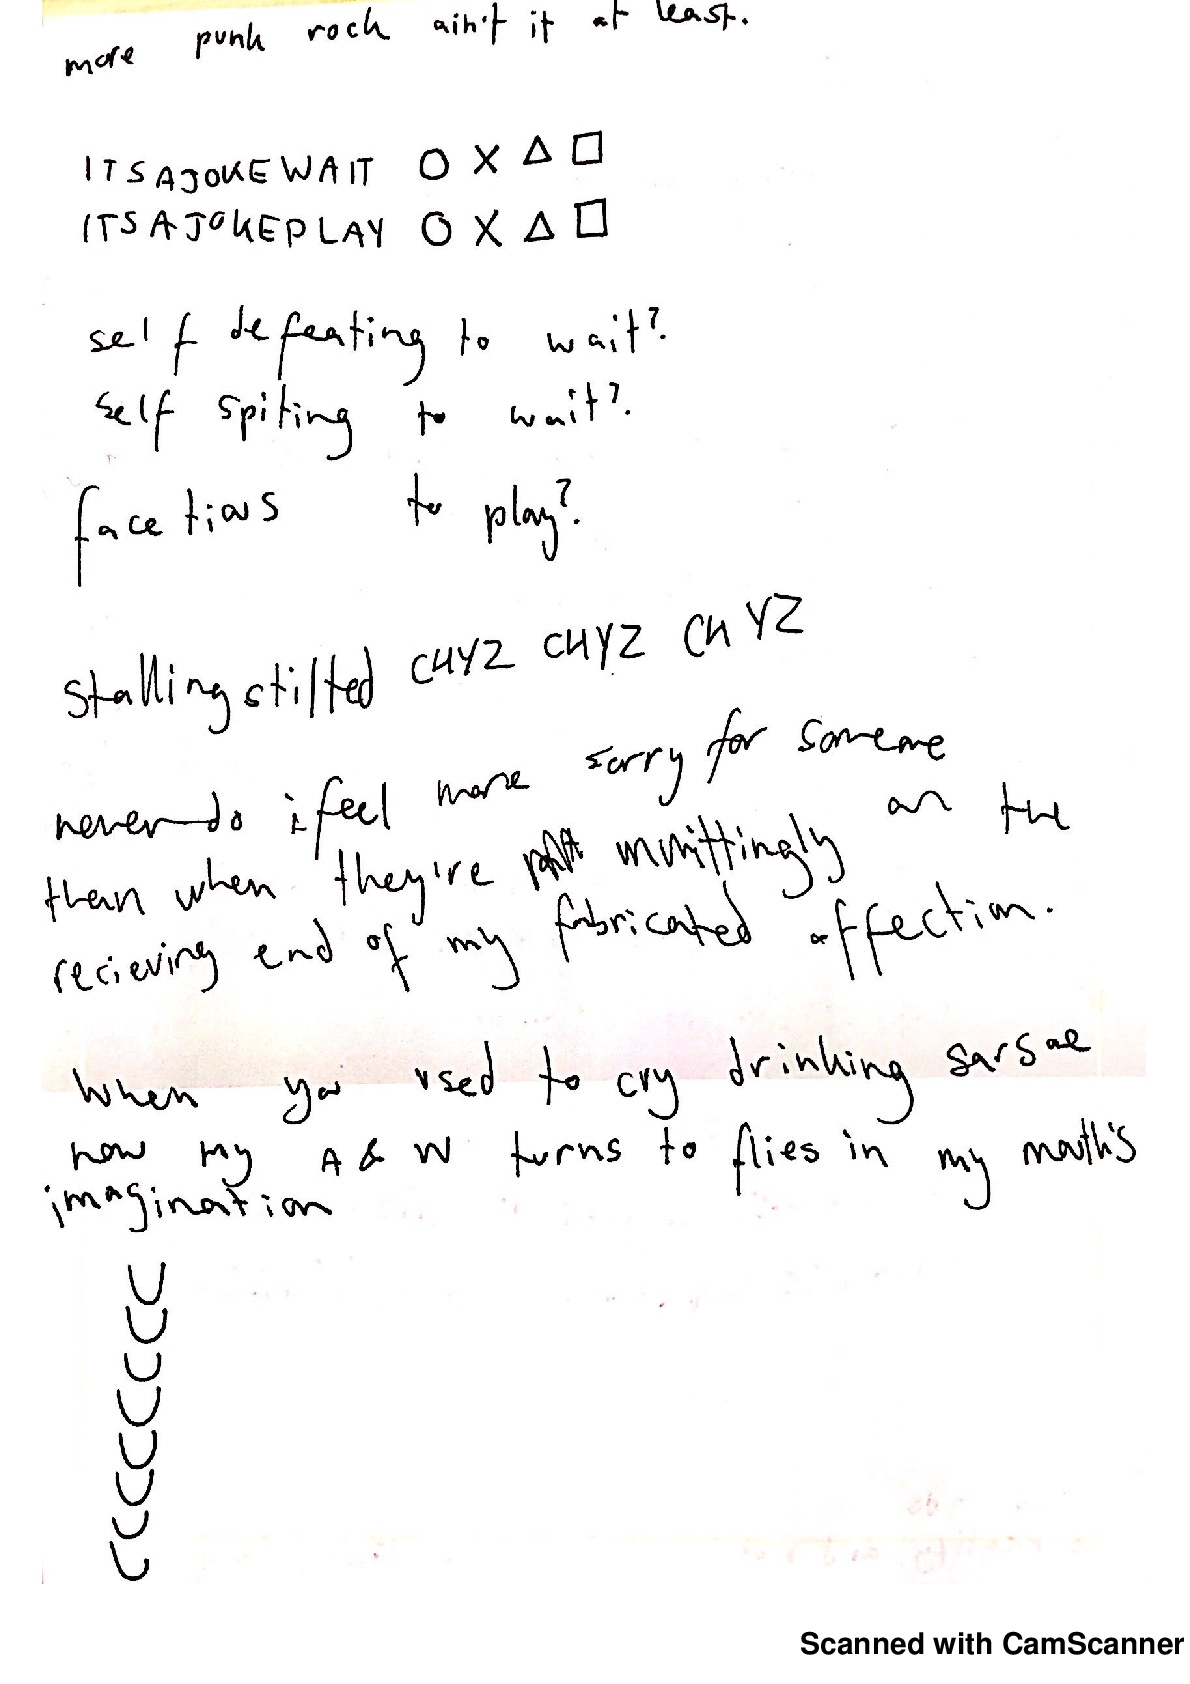 more punk rock ain't it at least.
ITSAJOKEWAIT O X △ □
ITSAJOKEPLAY O X △ □
self defeating to wait?
self spiting to wait?
facetious to play?
stalling stilted CHYZ CHYZ CHYZ
never do i feel more sorry for someone
than when they're unwittingly on the
recieving end of my fabricated affection.
When you used to cry drinking sarsae
now my A & W turns to flies in my mouth's
imagination
U
U
U
U
U
U
U
U
Scanned with CamScanner